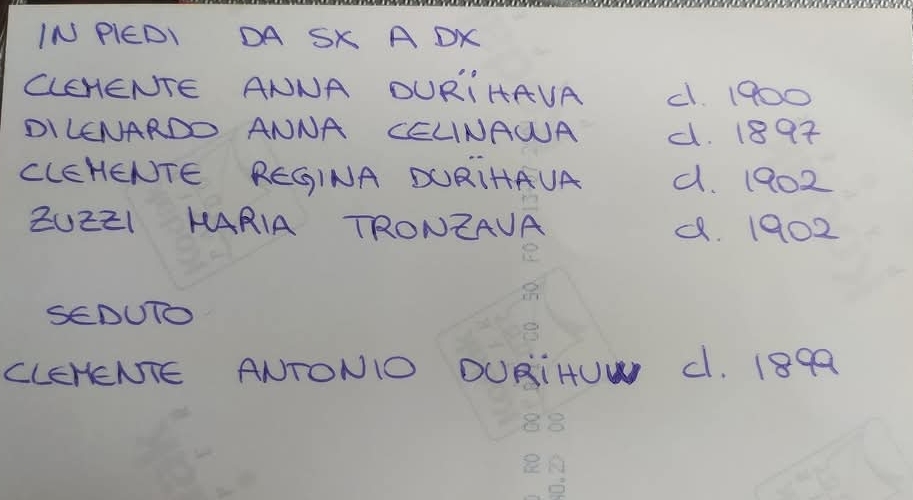 IN PIEDI DA SX A DX
CLEMENTE ANNA DURÏHAVA d. 1900
DI LENARDO ANNA CELINAWA d. 1897
CLEMENTE REGINA DURÏHAVA d. 1902
ZUZZI MARIA TRONZAVA d. 1902
SEDUTO
CLEMENTE ANTONIO DURÏHUW d. 1899